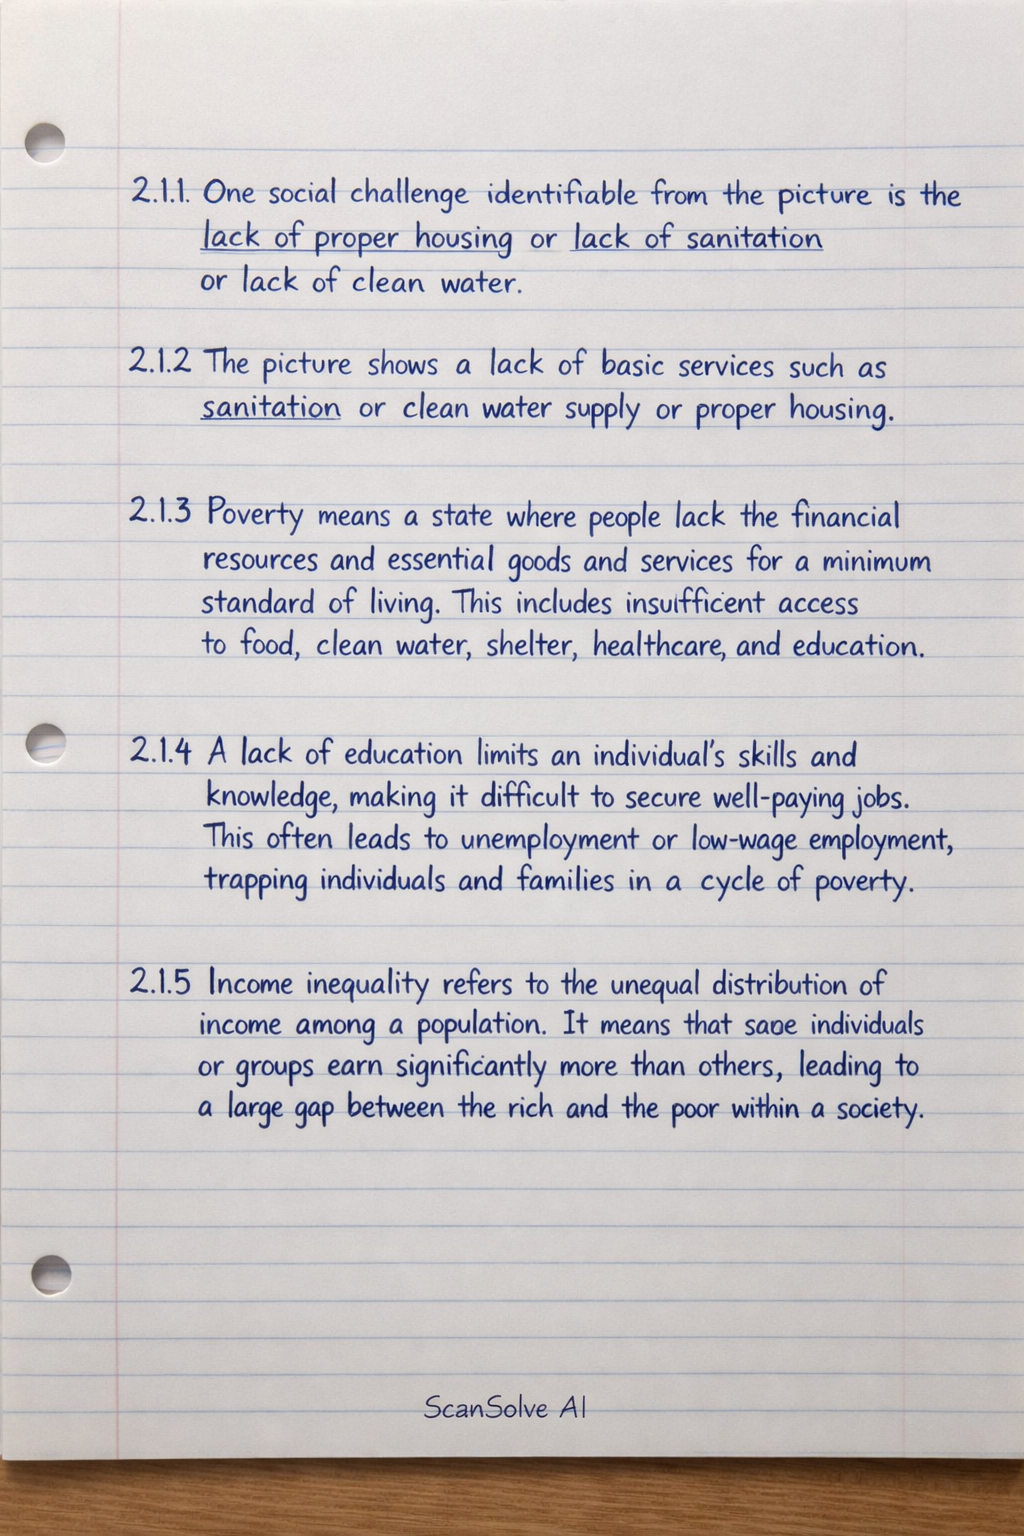 2.1.1. One social challenge identifiable from the picture is the
lack of proper housing or lack of sanitation
or lack of clean water.
2.1.2 The picture shows a lack of basic services such as
sanitation or clean water supply or proper housing.
2.1.3 Poverty means a state where people lack the financial
resources and essential goods and services for a minimum
standard of living. This includes insufficient access
to food, clean water, shelter, healthcare, and education.
2.1.4 A lack of education limits an individual's skills and
knowledge, making it difficult to secure well-paying jobs.
This often leads to unemployment or low-wage employment,
trapping individuals and families in a cycle of poverty.
2.1.5 Income inequality refers to the unequal distribution of
income among a population. It means that individuals
or groups earn significantly more than others, leading to
a large gap between the rich and the poor within a society.
ScanSolve AI